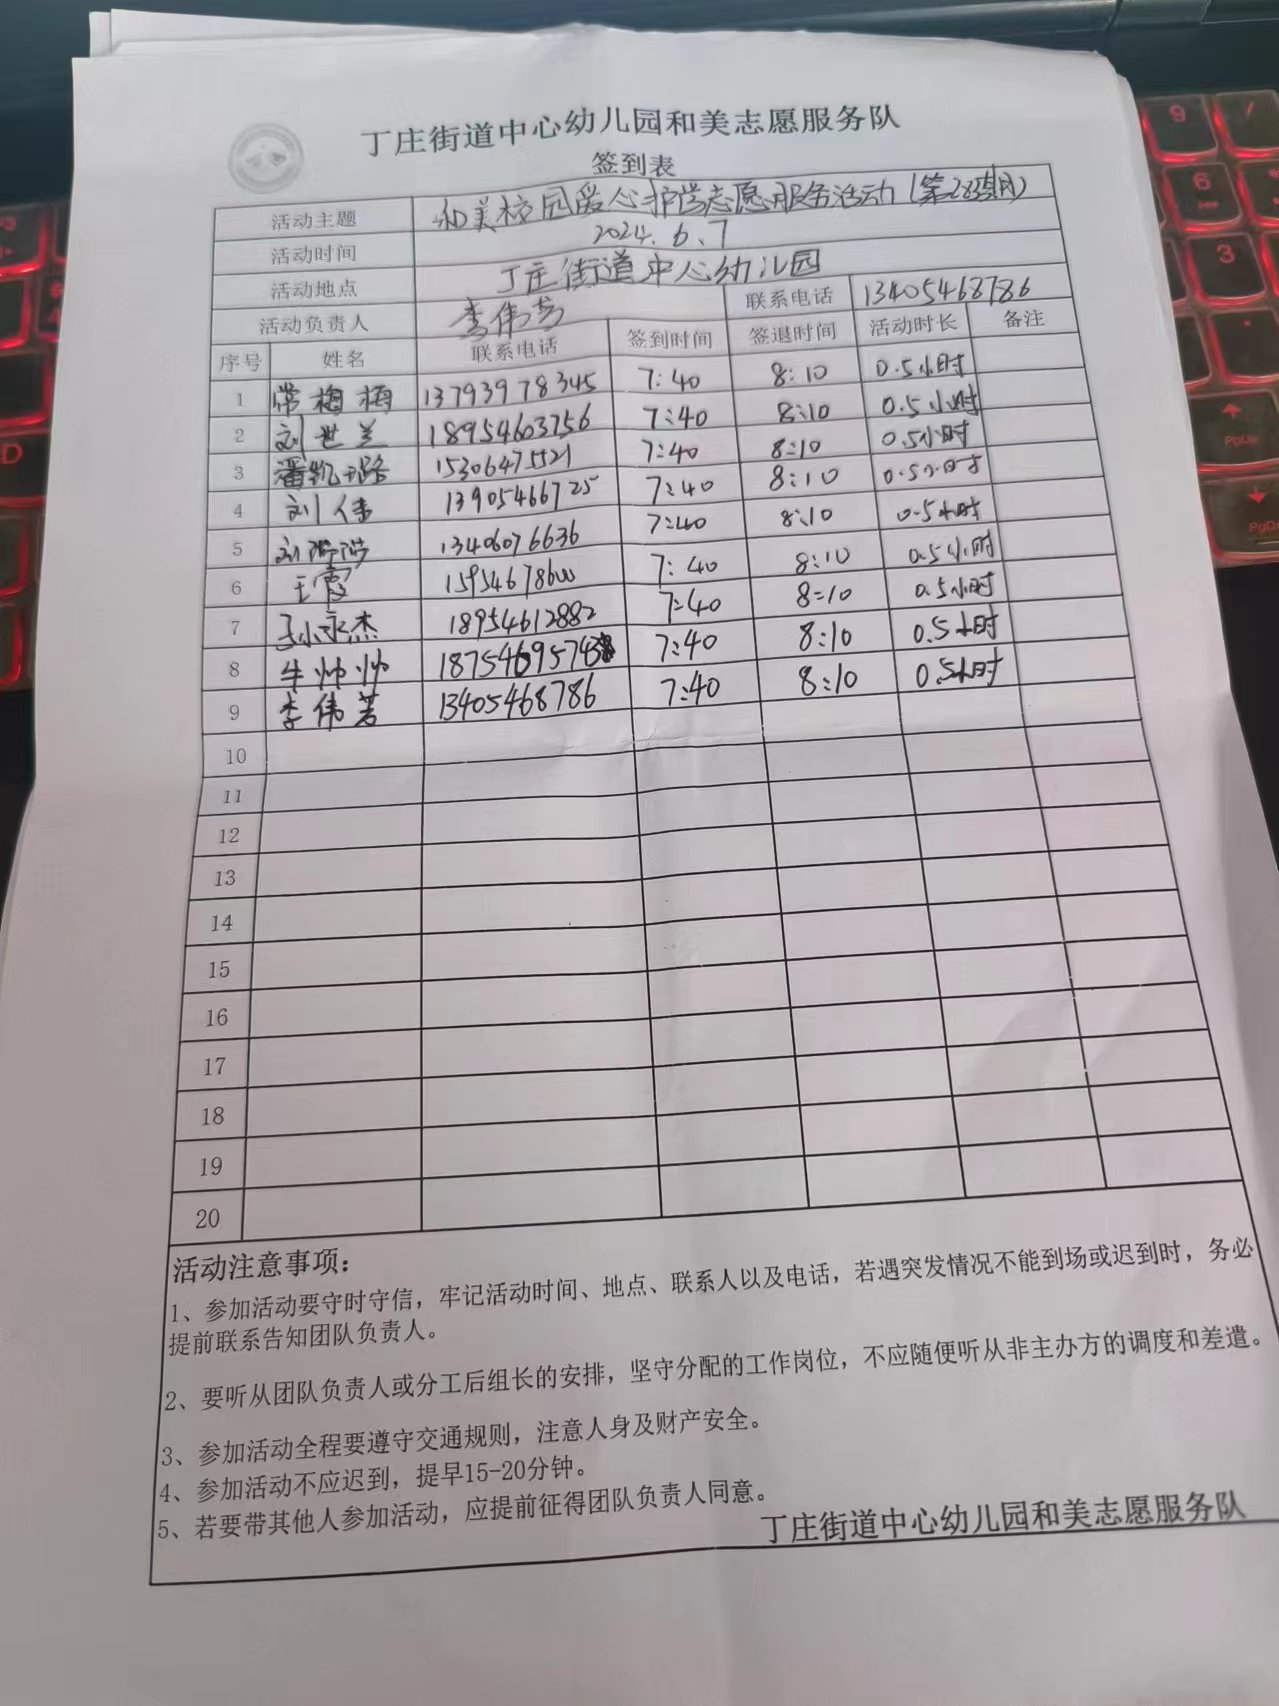 丁庄街道中心幼儿园和美志愿服务队
签到表
活动主题 和美校园爱心护学志愿服务活动(第283期)
活动时间 2024.6.7
活动地点 丁庄街道中心幼儿园
活动负责人 李伟芳 联系电话 13405468786
序号 姓名 联系电话 签到时间 签退时间 活动时长 备注
1 常梅梅 13793978345 7:40 8:10 0.5小时
2 刘世兰 18954603756 7:40 8:10 0.5小时
3 潘凯璐 15306475521 7:40 8:10 0.5小时
4 刘伟 13905466725 7:40 8:10 0.5小时
5 刘 13406076636 7:40 8:10 0.5小时
6 王霞 15954678600 7:40 8:10 0.5小时
7 孙永杰 18954612882 7:40 8:10 0.5小时
8 牛帅帅 7:40 8:10 0.5小时
9 李伟芳 13405468786 7:40 8:10 0.5小时
10
11
12
13
14
15
16
17
18
19
20
活动注意事项:
1、参加活动要守时守信,牢记活动时间、地点、联系人以及电话,若遇突发情况不能到场或迟到时,务必
提前联系告知团队负责人。
2、要听从团队负责人或分工后组长的安排,坚守分配的工作岗位,不应随便听从非主办方的调度和差遣。
3、参加活动全程要遵守交通规则,注意人身及财产安全。
4、参加活动不应迟到,提早15-20分钟。
5、若要带其他人参加活动,应提前征得团队负责人同意。
丁庄街道中心幼儿园和美志愿服务队